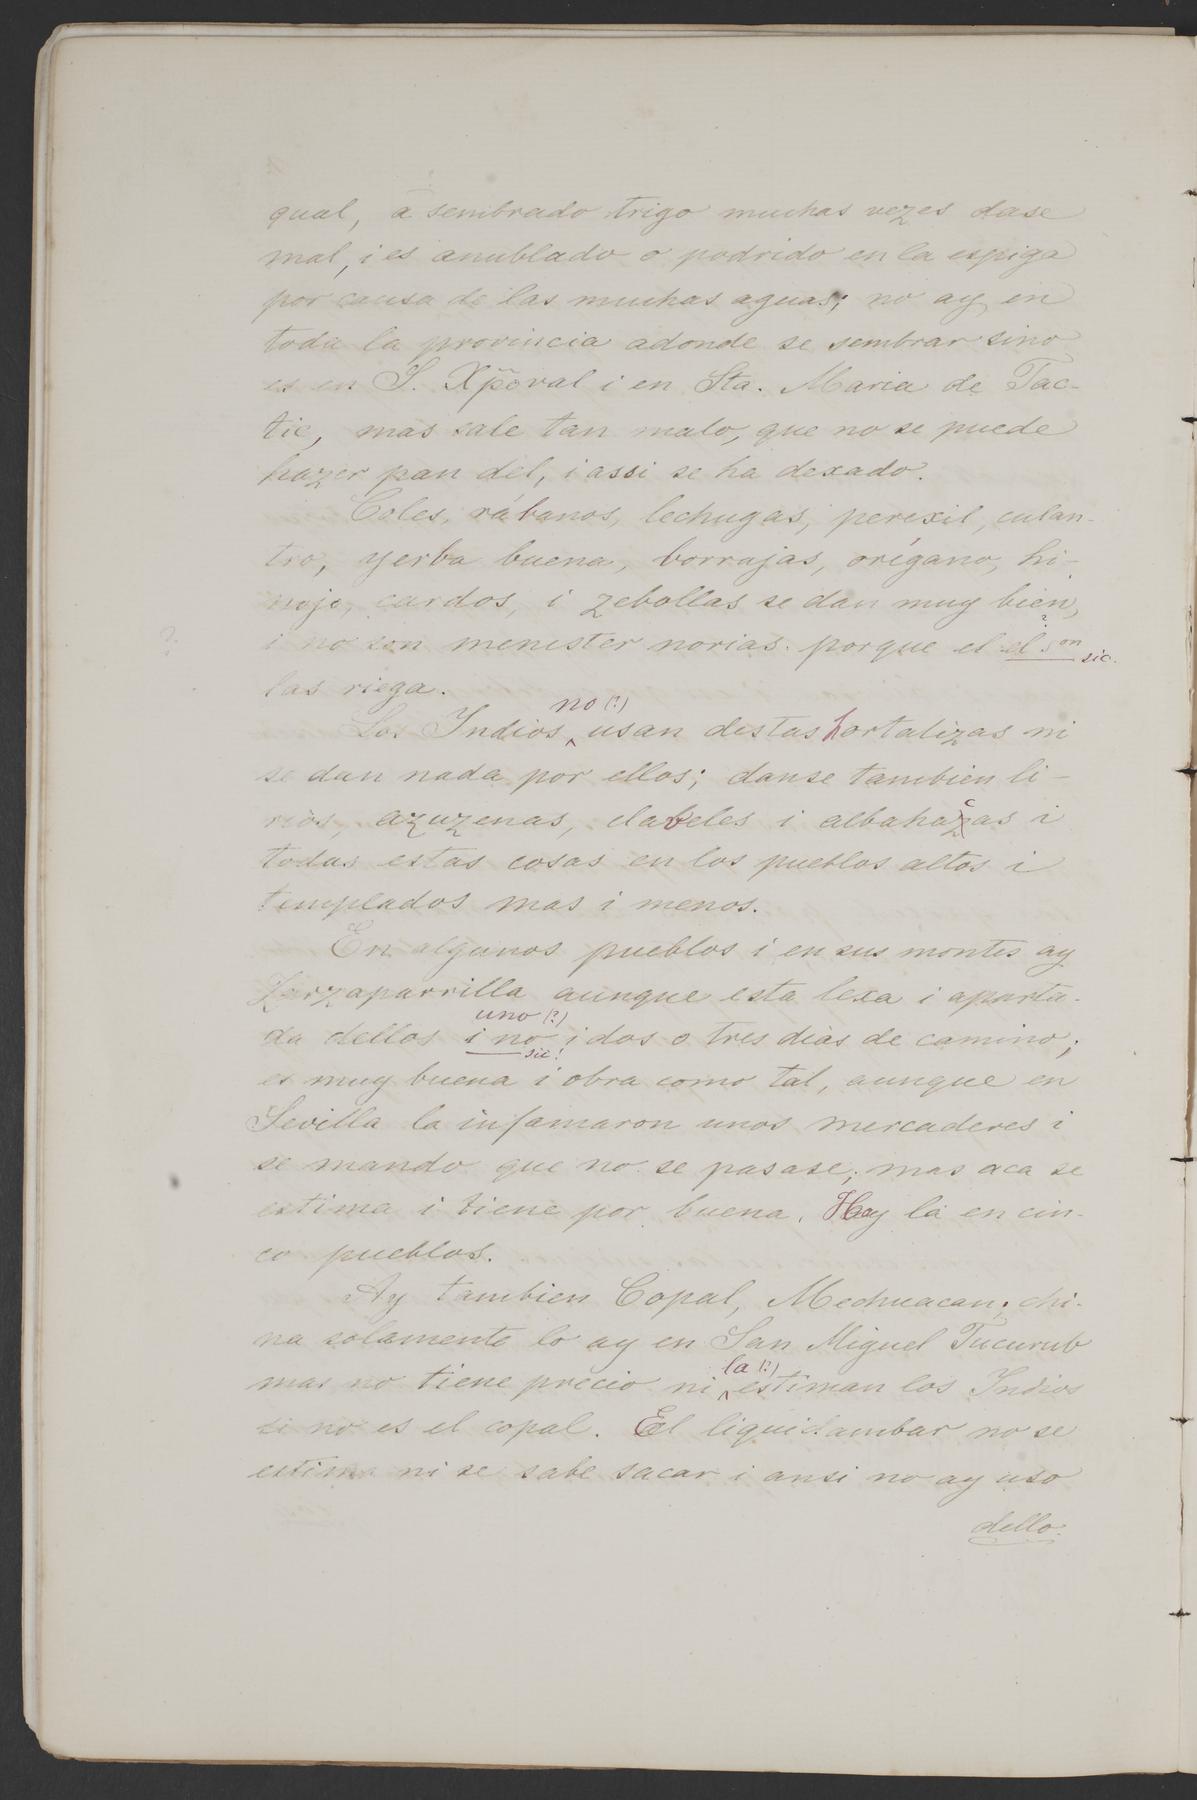 qual, à sembrado trigo muchas vezes dase
mal, i es anublado o podrido en la espiga
por causa de las muchas aguas; no ay en
toda la provincia adonde se sembrar sino
es en S. Xp̃oval i en Sta. Maria de Tac-
tic, mas sale tan malo, que no se puede
hazer pan del, i assi se ha dexado.
Coles, rábanos, lechugas, perexil, culan-
tro, yerba buena, borrajas, orégano, hi-
nojo, cardos, i zebollas se dan muy bien,
?
? i no son menester norias. porque el el son sic.
las riega.
no (?)
Los Indios ^ usan destas hortalizas ni
se dan nada por ellos; danse tambien li-
rios, azuzenas, claveles i albahacas i
todas estas cosas en los pueblos altos i
templados mas i menos.
En algunos pueblos i en sus montes ay
Zarzaparrilla aunque esta lexa i aparta-
uno (?)
da dellos i no i dos o tres dias de camino;
sic!
es muy buena i obra como tal, aunque en
Sevilla la infamaron unos mercaderes i
se mando que no se pasase; mas aca se
estima i tiene por buena. Hay la en cin-
co pueblos.
Ay tambien Copal, Mechuacan; chi-
na solamente lo ay en San Miguel Tucurub
la (?)
mas no tiene precio ni ^ estiman los Indios
si no es el copal. El liquidambar no se
estima ni se sabe sacar i ansi no ay uso
dello.